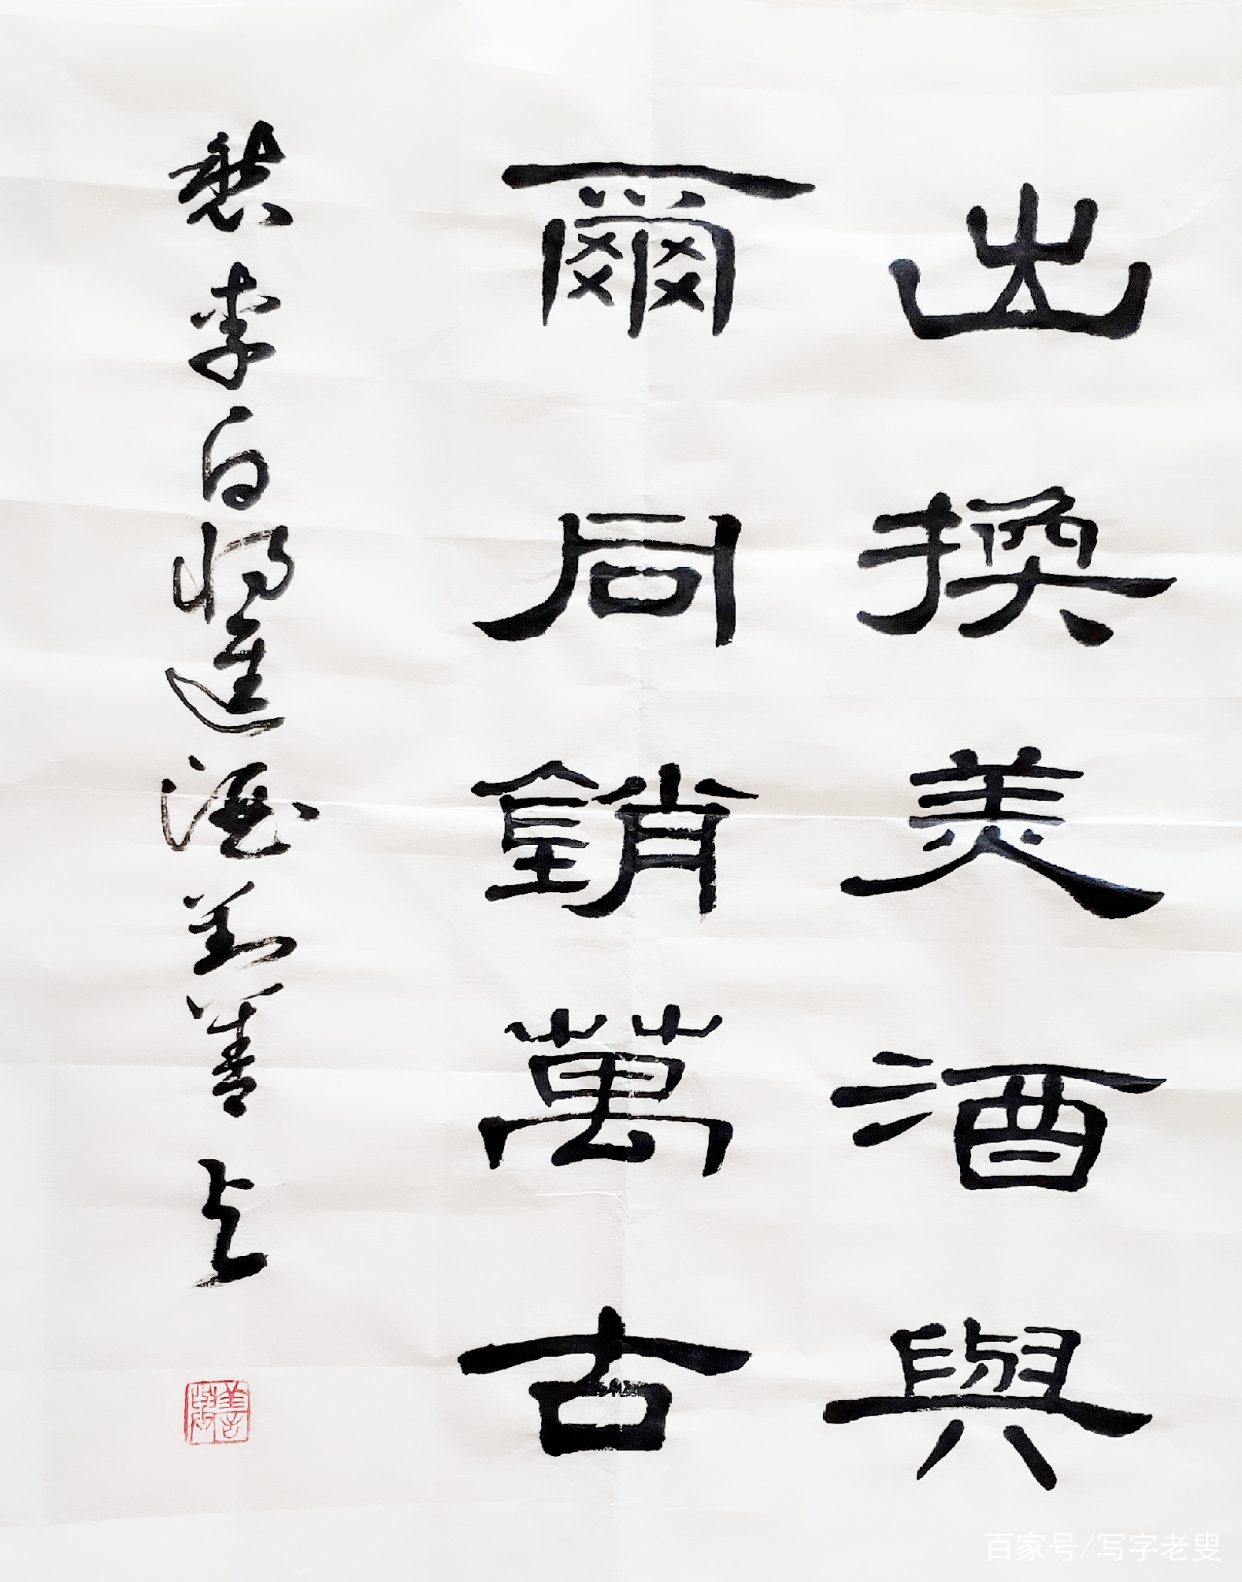 出換美酒與
爾同銷萬古
李白將進酒 劉善
百家号/写字老叟